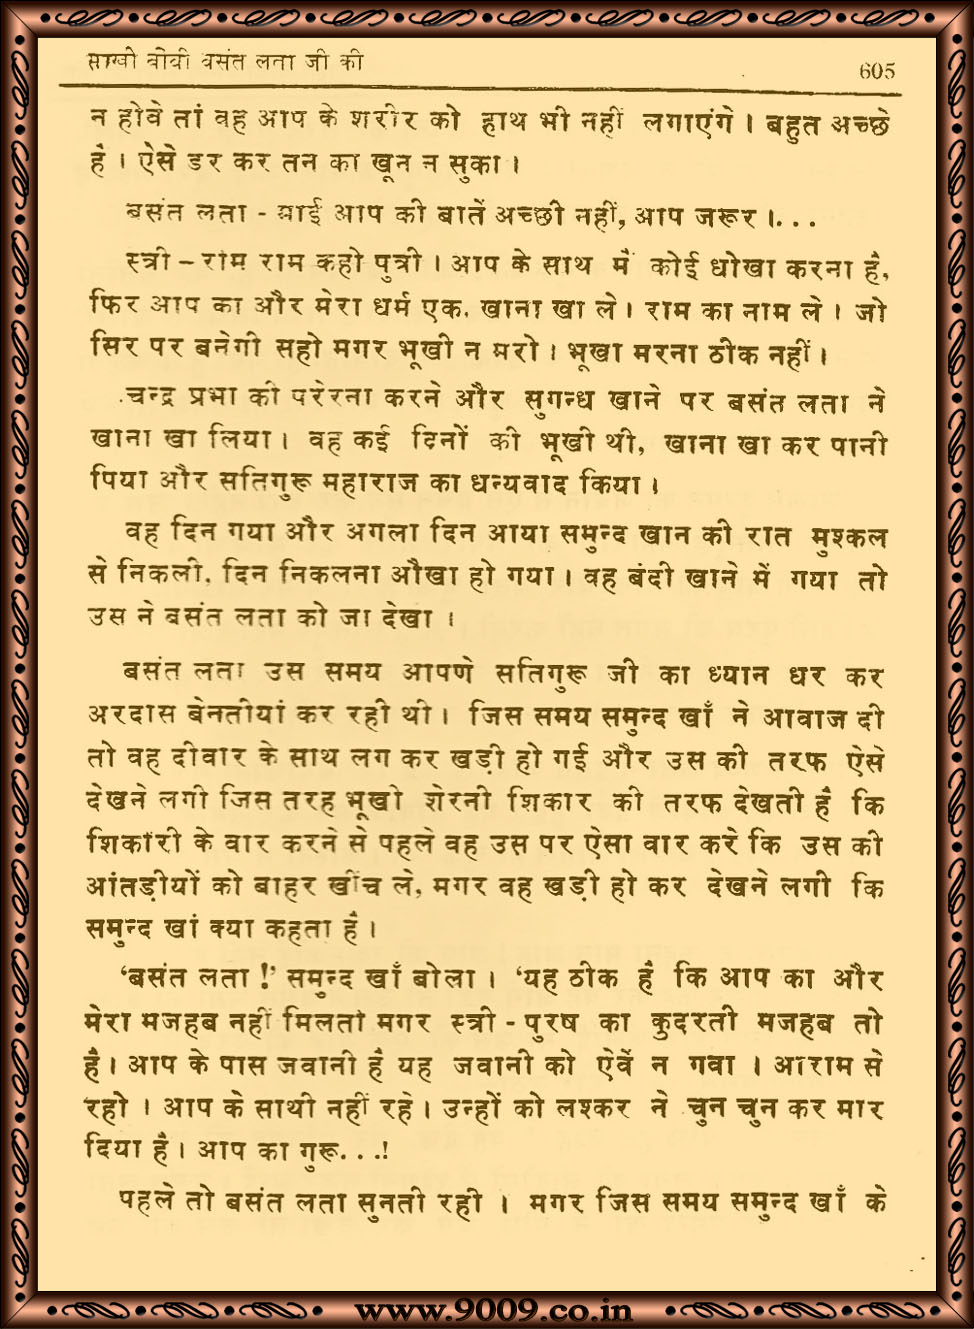 साखी बीबी बसंत लता जी की
605
न होवे तां वह आप के शरीर को हाथ भी नहीं लगाएंगे । बहुत अच्छे
है । ऐसे डर कर तन का खून न सुका ।
बसंत लता - माई आप की बातें अच्छी नहीं, आप जरूर ।. . .
स्त्री – राम राम कहो पुत्री । आप के साथ मैं कोई धोखा करना है,
फिर आप का और मेरा धर्म एक, खाना खा ले । राम का नाम ले । जो
सिर पर बनेगी सहो मगर भूखी न मरो । भूखा मरना ठीक नहीं ।
चन्द्र प्रभा की परेरना करने और सुगन्ध खाने पर बसंत लता ने
खाना खा लिया । वह कई दिनों की भूखी थी, खाना खा कर पानी
पिया और सतिगुरू महाराज का धन्यवाद किया ।
वह दिन गया और अगला दिन आया समुन्द खान की रात मुश्कल
से निकली, दिन निकलना औखा हो गया । वह बंदी खाने में गया तो
उस ने बसंत लता को जा देखा ।
बसंत लता उस समय आपणे सतिगुरू जी का ध्यान धर कर
अरदास बेनतीयां कर रही थी । जिस समय समुन्द खाँ ने आवाज दी
तो वह दीवार के साथ लग कर खड़ी हो गई और उस की तरफ ऐसे
देखने लगी जिस तरह भूखी शेरनी शिकार की तरफ देखती है कि
शिकारी के वार करने से पहले वह उस पर ऐसा वार करे कि उस की
आंतड़ीयों को बाहर खींच ले, मगर वह खड़ी हो कर देखने लगी कि
समुन्द खां क्या कहता है ।
‘बसंत लता !’ समुन्द खाँ बोला । ‘यह ठीक है कि आप का और
मेरा मजहब नहीं मिलता मगर स्त्री - पुरष का कुदरती मजहब तो
है । आप के पास जवानी है यह जवानी को ऐवें न गवा । आराम से
रहो । आप के साथी नहीं रहे । उन्हों को लश्कर ने चुन चुन कर मार
दिया है । आप का गुरू. . .!
पहले तो बसंत लता सुनती रही । मगर जिस समय समुन्द खाँ के
www.9009.co.in